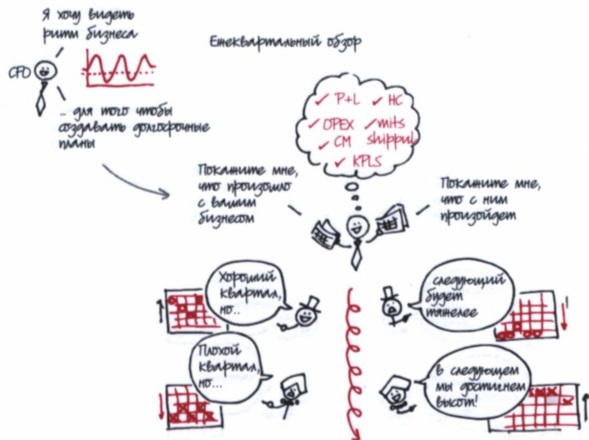 Я хочу видеть
ритм бизнеса
CFO
... для того чтобы
создавать долгосрочные
планы
Ежеквартальный обзор
P+L
HC
OPEX
mits
CM
shippul
KPLS
Покажите мне,
что произошло
с вашим
бизнесом
Покажите мне,
что с ним
произойдет
Хороший
квартал,
но...
следующий
будет
тяжелее
Плохой
квартал,
но...
в следующем
мы достигнем
высот!